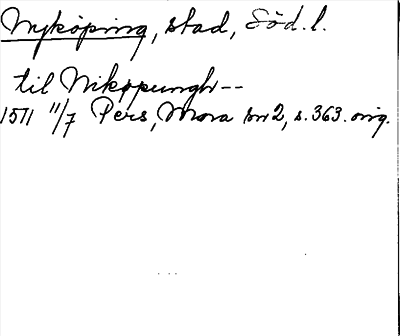 Nyköping, stad, Söd. l.
til Nikøpungh--
1511 11/7 Pers, Mora nr 2, s. 363. orig.